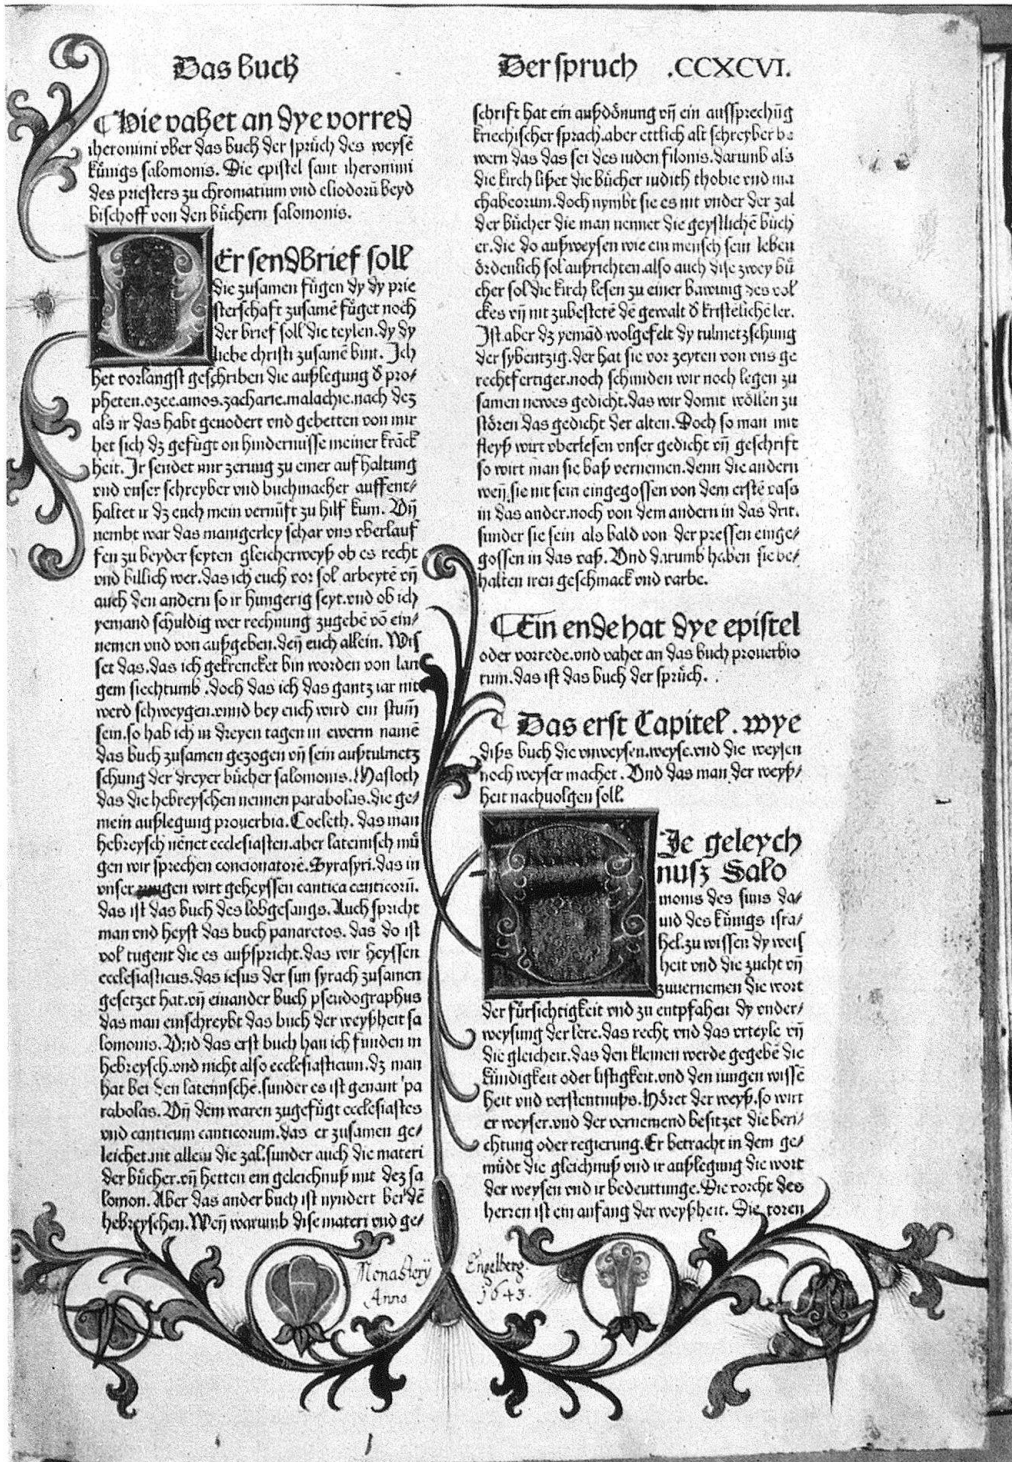 Das buch
Der spruch .CCXCVI.
¶Hie vahet an dye vorred
iheronimi vber das buch der sprüch des weysē
künigs salomonis. Die epistel sant iheronimi
des priesters zu chromatium vnd eliodorū beyd
bischoff von den büchern salomonis.
Er sendBrief soll
die zusamen fügen dy dy prie
sterschafft zusamē füget noch
der brief soll die teylen. dy dy
liebe christi zusamē bint. Ich
het vorlangst geschriben die außlegung d̕ pro⸗
pheten.ozee.amos.zacharie.malachie.nach dez
als ir das habt genodert vnd gebetten von mir
het sich dz gefügt on hindernusse meiner krāck
heit. Ir sendet mir zerung zu einer auf haltung
vnd vnser schreyber vnd buchmacher auffent⸗
haltet ir dz euch mein vernūft zu hilf kum. Vn̄
nembt war das manigerley schar vns vberlauf
fen zu beyder seyten gleicherweyß ob es recht
vnd billich wer.das ich euch vor sol arbeytē vn̄
auch den andern so ir hungerig seyt.vnd ob ich
yemand schuldig wer rechnung zugebē vō ein⸗
nemen vnd von außgeben.den̄ euch allein. Wis
set das.das ich gekrencket bin worden von lan
gem siechtumb.doch das ich das gantz iar nit
werd schweygen.vnnd bey euch wird ein stum̄
sein.so hab ich in dreyen tagen in ewerm namē
das buch zusamen gezogen vn̄ sein außtulmetz
schung der dreyer bücher salomonis. Masloth
das die hebreyschen nennen parabolas.die ge⸗
mein außlegung prouerbia. Coeleth. das man
hebreysch nēnet ecclesiasten.aber lateinisch mü
gen wir sprechen concionatorē. Syrasyri.das in
vnser zungen wirt geheyssen cantica canticorū.
das ist das buch des lobgesangs. Auch spricht
man vnd heyst das buch panaretos. das do ist
vol tugent die es außspricht.das wir heyssen
ecclesiasticus.das iesus der sun syrach zusamen
gesetzet hat.vn̄ einander buch pseudographus
das man einschreybt das buch der weyßheit sa
lomonis. Vnd das erst buch han ich funden in
hebreysch.vnd nicht also ecclesiasticum.dz man
hat bei den lateinischē.sunder es ist genant pa
rabolas. Vn̄ dem waren zugefügt ecclesiastes
vnd canticum canticorum.das er zusamen ge⸗
leichet.nit allein die zal.sunder auch die materi
der bücher.vn̄ hetten ein geleichnuß mit dez sa
lomon. Aber das ander buch ist nyndert bei dē
hebreyschen. Wen̄ warumb dise materi vnd ge⸗
schrift hat ein außdönung vn̄ ein aussprechūg
kriechischer sprach.aber ettlich alt schreyber be
wern das das sei des iuden filonis.darumb als
die kirch lißet die bücher iudith thobie vnd ma
chabeorum.doch nymbt sie es nit vnder der zal
der bücher die man nennet die geystlichē büch
er.die do außweysen wie ein mensch sein leben
ördenlich sol außrichten.also auch dise zwey bü
cher sol die kirch lesen zu einer bawung des vol
ckes vn̄ nit zubestetē dē gewalt d̕ kristelichē ler.
Ist aber dz yemād wolgefelt dy tulmetzschung
der sybentzig.der hat sie vor zeyten von vns ge
rechtfertiget.noch schmiden wir noch legen zu
samen newes gedicht.das wir domit wöllen zu
stören das gedicht der alten. Doch so man mit
fleyß wirt vberlesen vnser gedicht vn̄ geschrift
so wirt man sie baß vernemen.denn die andern
wen̄ sie nit sein eingegossen von dem erstē vass
in das ander.noch von dem andern in das drit.
sunder sie sein als bald von der pressen einge⸗
gossen in das vaß. Vnd darumb haben sie be⸗
halten iren geschmack vnd varbe.
¶Ein ende hat dye epistel
oder vorrede.vnd vahet an das buch prouerbio
rum.das ist das buch der sprüch.
¶Das erst Capitel. wye
diß buch die vnweysen.weyse.vnd die weysen
noch weyser machet. Vnd das man der weyß⸗
heit nachuolgen soll.
Je geleych
nusz Salo
monis des suns da⸗
uid des künigs isra⸗
hel.zu wissen dy weis
heit vnd die zucht vn̄
zuuernemen die wort
der fürsichtigkeit vnd zu entpfahen dy vnder⸗
weysung der lere.das recht vnd das vrteyle vn̄
die gleicheit.das den kleinen werde gegebē die
kündigkeit oder listigkeit.vnd den iungen wissē
heit vnd verstentnuß. Höret der weyß.so wirt
er weyser.vnd der vernemend besitzet die beri⸗
chtung oder regierung. Er betracht in dem ge⸗
müdt die gleichnuß vnd ir außlegung die wort
der weysen vnd ir bedeuttunge. Die vorcht des
herren ist ein anfang der weyßheit. Die toren
Monasterÿ Engelberg.
Anno 1643.